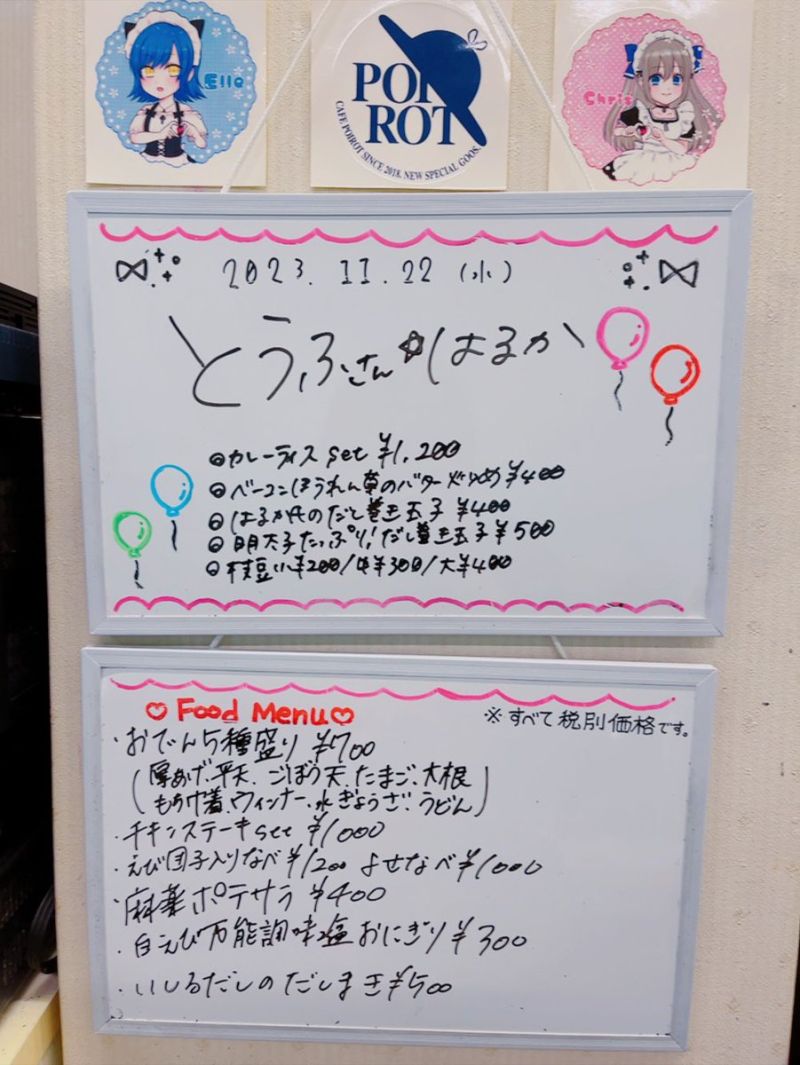 Elle
POIROT
CAFE POIROT SINCE 2018. NEW SPECIAL GOOS.
Chris
2023. 11. 22 (水)
\とうふさん☆はるか\
◎カレーライス set ¥1,200
◎ベーコンほうれん草のバター炒め ¥400
◎はるか氏のだし巻き玉子 ¥400
◎明太子たっぷり!だし巻き玉子 ¥500
◎枝豆 小¥200/中¥300/大¥400
♡ Food Menu ♡
※すべて税別価格です。
・おでん5種盛り ¥700
(厚あげ、平天、ごぼう天、たまご、大根
もちげ着、ウィンナー、水ぎょうざ、うどん)
・チキンステーキset ¥1000
・えび団子入りなべ ¥1200 よせなべ ¥1000
・麻薬ポテサラ ¥400
・白えび万能調味塩おにぎり ¥300
・いしるだしのだしまき ¥500